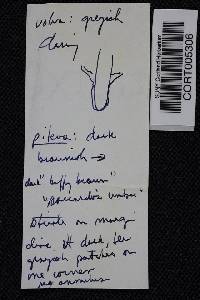 volva: greyish
pileus: dark
brownish →
dark "buffy brown"
"Boccardo's umber"
Striate on margi
disc dk,
greyish patches on
one corner
no annulus
CORT005306